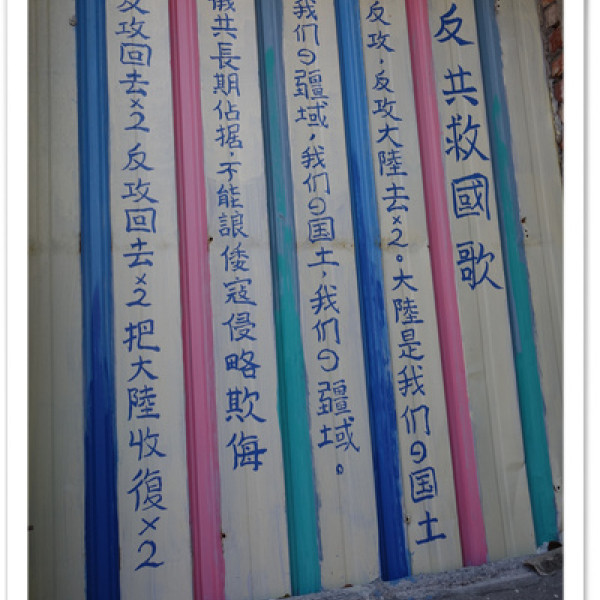 反共救國歌
反攻，反攻大陸去x2。大陸是我们の国土
我们の疆域，我们の国土，我们の疆域。
共長期佔据，不能誏倭寇侵略欺侮
反攻回去x2 反攻回去x2 把大陸收復x2